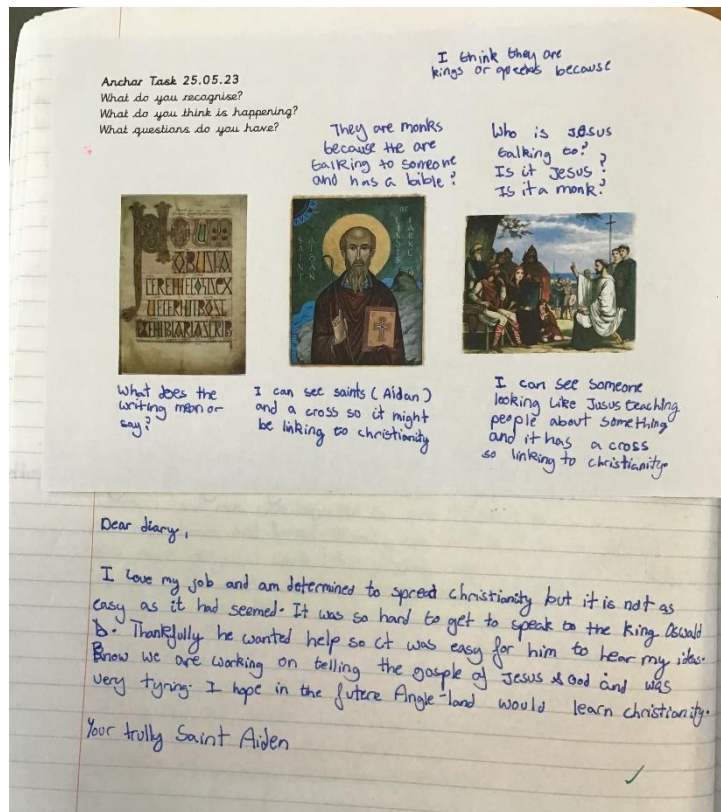 I think they are
kings or queens because
Anchor Task 25.05.23
What do you recognise?
What do you think is happening?
What questions do you have?
They are monks
because the are
talking to someone
and has a bible?
Who is Jesus
talking to?
Is it Jesus?
Is it a monk?
SAINT
AIDAN
OF
LINDIS
FARNE
What does the
writing mean or
say?
I can see saints (Aidan)
and a cross so it might
be linking to christianity
I can see someone
looking like Jusus teaching
people about something
and it has a cross
so linking to christianity.
Dear diary,
I love my job and am determined to spread christianity but it is not as
easy as it had seemed. It was so hard to get to speak to the King Oswald
. Thankfully he wanted help so it was easy for him to hear my ideas.
know we are working on telling the gosple of Jesus & God and was
very tyring. I hope in the future Angle-land would learn christianity.
Your trully Saint Aiden